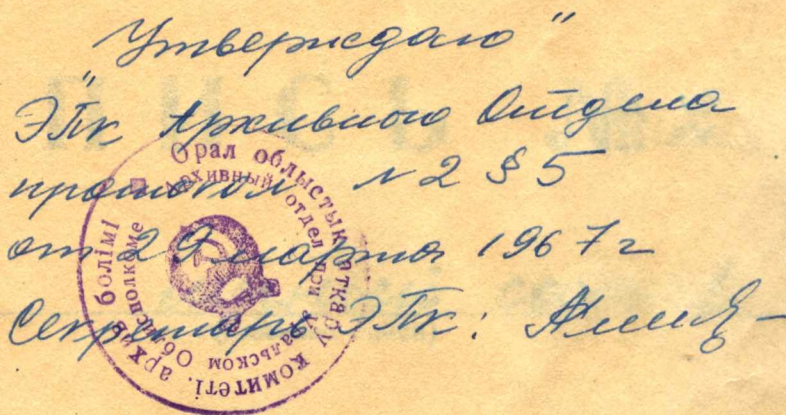 "Утверждаю"
ЭПК Архивного Отдела
протокол N 2 § 5
от 29 марта 1967 г
Секретарь ЭПК:
Орал облыстық атқару комитеті. архив бөлімі
архивный отдел при Уральском Облисполкоме